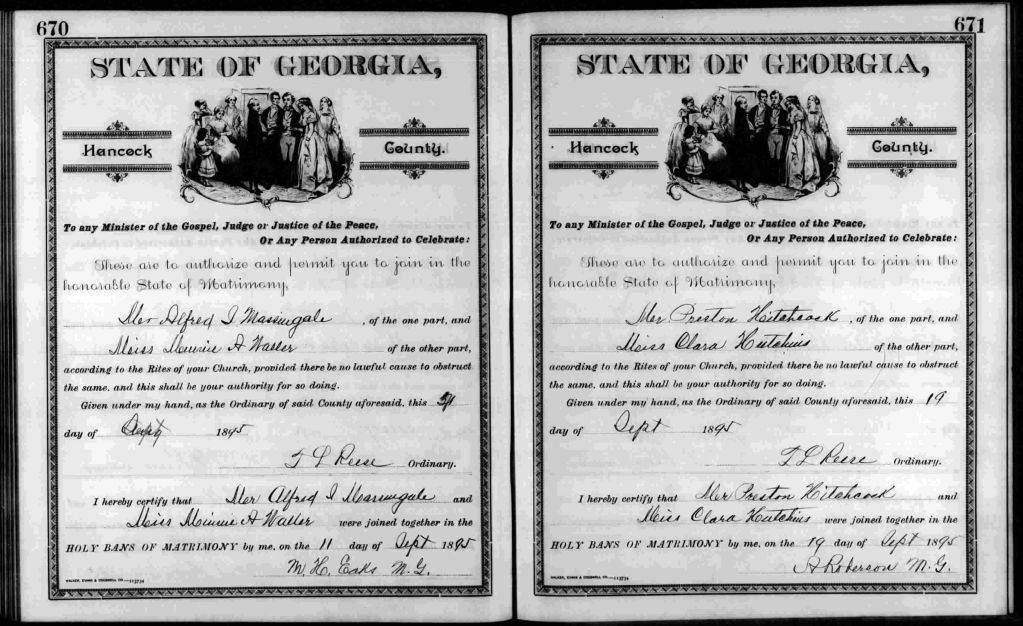 670
STATE OF GEORGIA,
Hancock County.
To any Minister of the Gospel, Judge or Justice of the Peace,
Or Any Person Authorized to Celebrate:
These are to authorize and permit you to join in the
honorable State of Matrimony,
Mr Alfred I Massingale , of the one part, and
Miss Minnie A Waller of the other part,
according to the Rites of your Church, provided there be no lawful cause to obstruct
the same, and this shall be your authority for so doing.
Given under my hand, as the Ordinary of said County aforesaid, this
day of 1895
T L Reese Ordinary.
I hereby certify that Mr Alfred I Massingale and
Miss Minnie A Waller were joined together in the
HOLY BANS OF MATRIMONY by me, on the 11 day of Sept 1895
M. H. Eaks M. G.
WALKER, EVANS & COGSWELL CO.—113734
671
STATE OF GEORGIA,
Hancock County.
To any Minister of the Gospel, Judge or Justice of the Peace,
Or Any Person Authorized to Celebrate:
These are to authorize and permit you to join in the
honorable State of Matrimony,
Mr Preston Hitchcock , of the one part, and
Miss Clara Hutchins of the other part,
according to the Rites of your Church, provided there be no lawful cause to obstruct
the same, and this shall be your authority for so doing.
Given under my hand, as the Ordinary of said County aforesaid, this 19
day of Sept 1895
T L Reese Ordinary.
I hereby certify that Mr Preston Hitchcock and
Miss Clara Hutchins were joined together in the
HOLY BANS OF MATRIMONY by me, on the 19 day of Sept 1895
A Roberson M. G.
WALKER, EVANS & COGSWELL CO.—113734